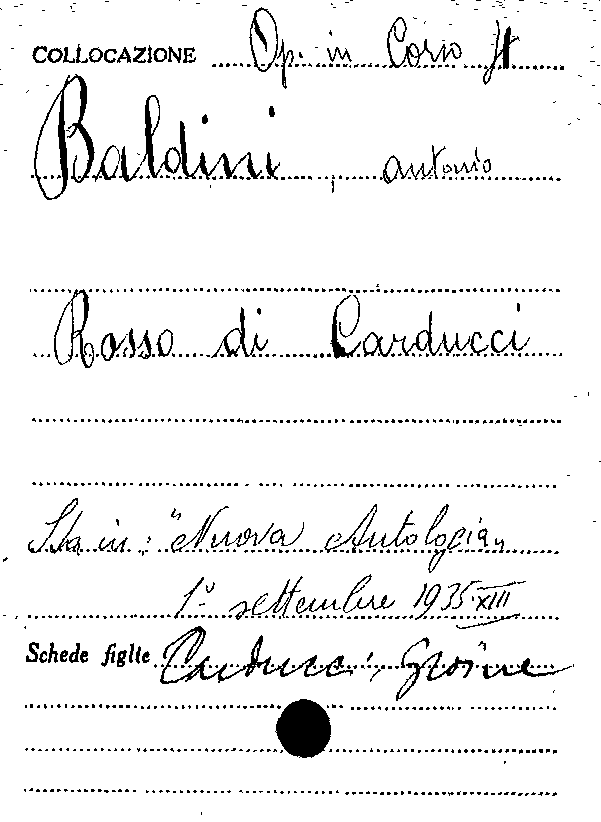 COLLOCAZIONE Op. in Corso It
Baldini, Antonio
Rosso di Carducci
Sta in: "Nuova Antologia"
1° settembre 1935-XIII
Schede figlie Carducci, Giosue